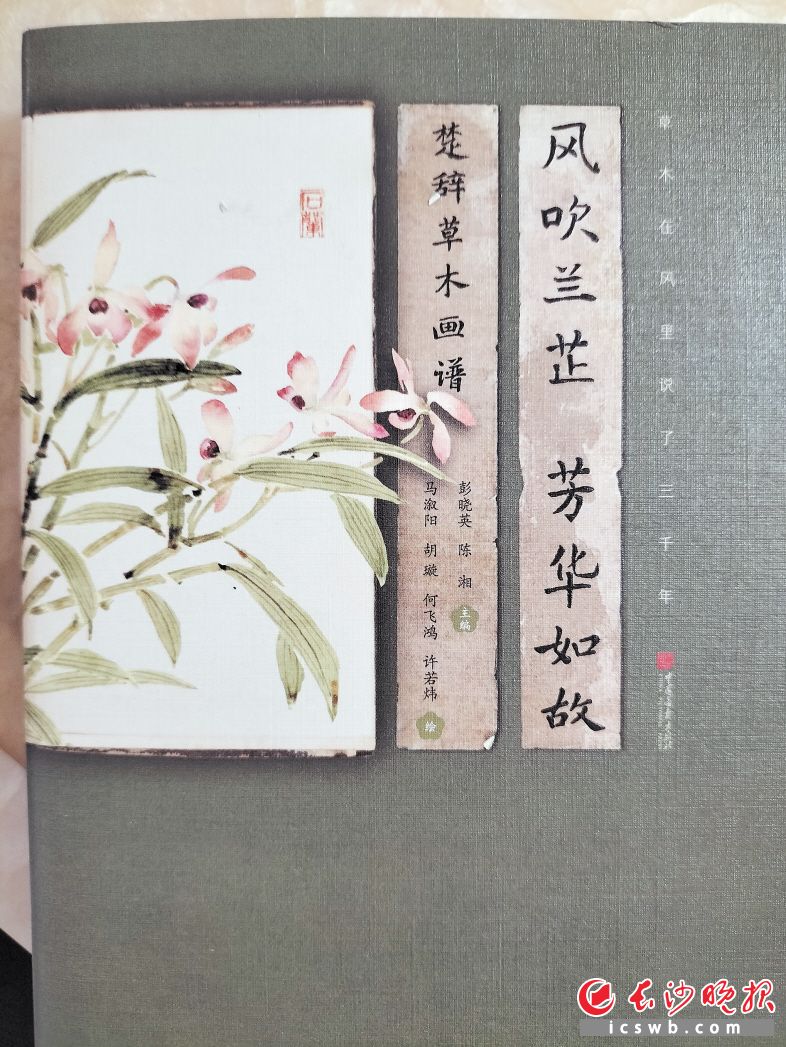 草木在风里说了三千年
风吹兰芷 芳华如故
楚辞草木画谱
彭晓英 陈湘 主编
马溆阳 胡璇 何飞鸿 许若炜 绘
石兰
长沙晚报
icswb.com